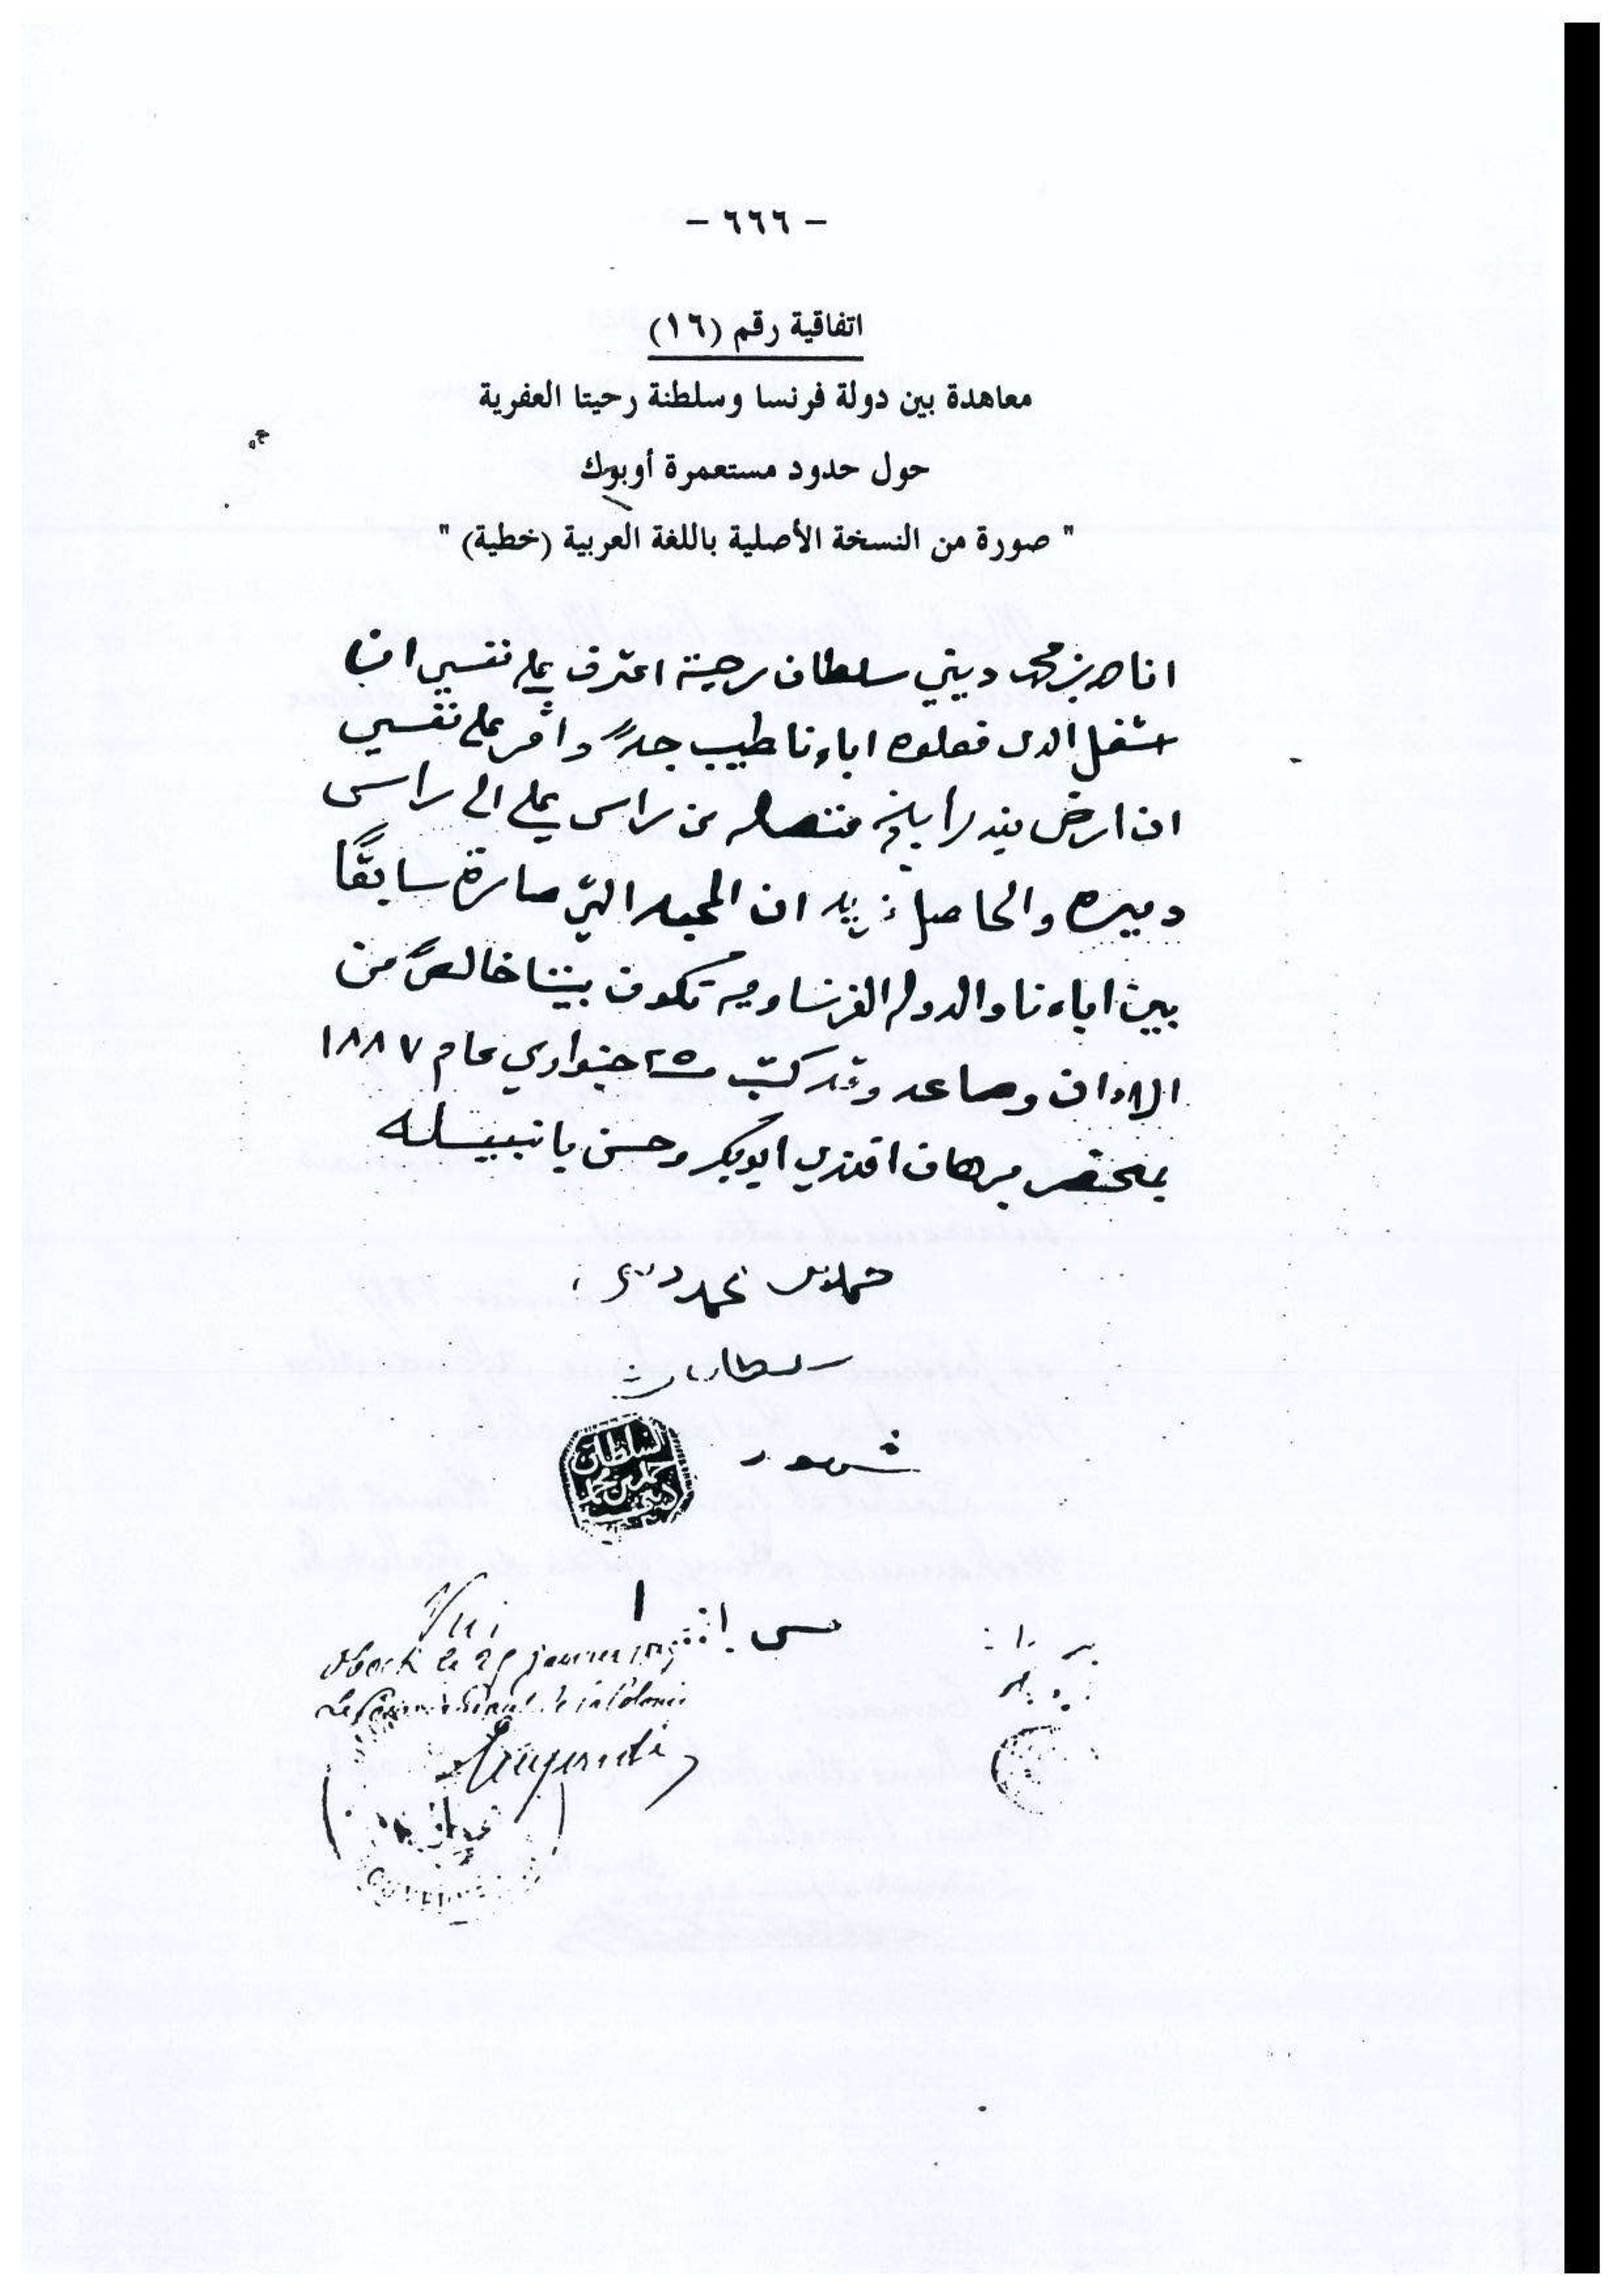 - ٦٦٦ -
اتفاقية رقم (١٦)
معاهدة بين دولة فرنسا وسلطنة رحيتا العفرية
حول حدود مستعمرة أوبوك
" صورة من النسخة الأصلية باللغة العربية (خطية) "
انا بن محمد ديني سلطان رحيتة اعترف على نفسي ان
شغل الدى فعلوه اباءنا طيب جداً واقر على نفسي
ان ارض من راس على الى راس
دميره والحاصل نريد ان المحبه التي صارة سابقًا
بين اباءنا والدوله الفرنساويه تكون بيننا خالصً من
الاوان وصاعد وقد كتب ٢٥ جنواري عام ١٨٨٧
بمحضر برهان افندي ابوبكر وحسن بانبيله
حمد بن محمد ديني
سلطان
شهود
السلطان
حمد بن محمد
ديني
Vu,
Obock le 25 janvier
Le de la Colonie